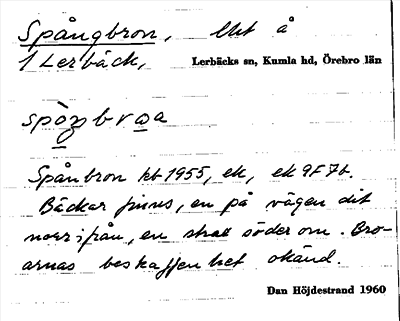 Spångbron, Ut å
1 Lerbäck, Lerbäcks sn, Kumla hd, Örebro län
Spånbron kb 1955, ek, ek 9F7b.
Bäckar finns, en på vägen dit
norrifrån, en strax söder om. Bro-
arnas beskaffenhet okänd.
Dan Höjdestrand 1960